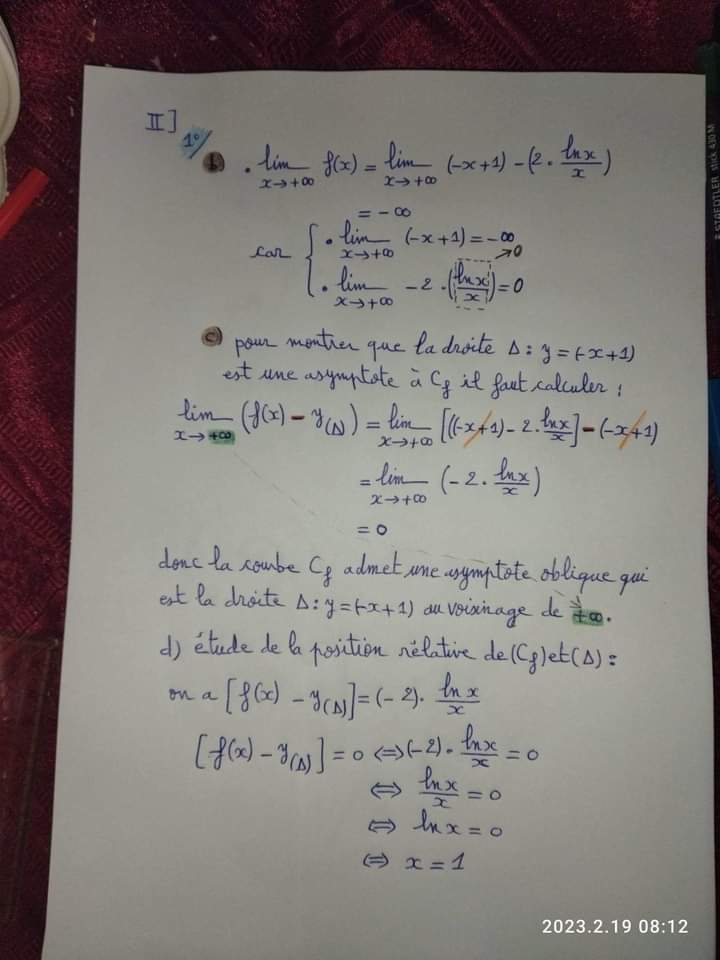 II]
1°/
b) . lim x→+∞ f(x) = lim x→+∞ (-x+1) - (2 · ln x / x)
= -∞
car { . lim x→+∞ (-x+1) = -∞
. lim x→+∞ -2 · (ln x / x) = 0 →0
c) pour montrer que la droite Δ : y = (-x+1)
est une asymptote à Cf il faut calculer :
lim x→+∞ (f(x) - y(Δ)) = lim x→+∞ [((-x+1) - 2 · ln x / x] - (-x+1)
= lim x→+∞ (-2 · ln x / x)
= 0
donc la courbe Cf admet une asymptote oblique qui
est la droite Δ : y = (-x+1) au voisinage de +∞.
d) étude de la position rélative de (Cf) et (Δ) :
on a [f(x) - y(Δ)] = (-2) · ln x / x
[f(x) - y(Δ)] = 0 ⇔ (-2) · ln x / x = 0
⇔ ln x / x = 0
⇔ ln x = 0
⇔ x = 1
2023.2.19 08:12